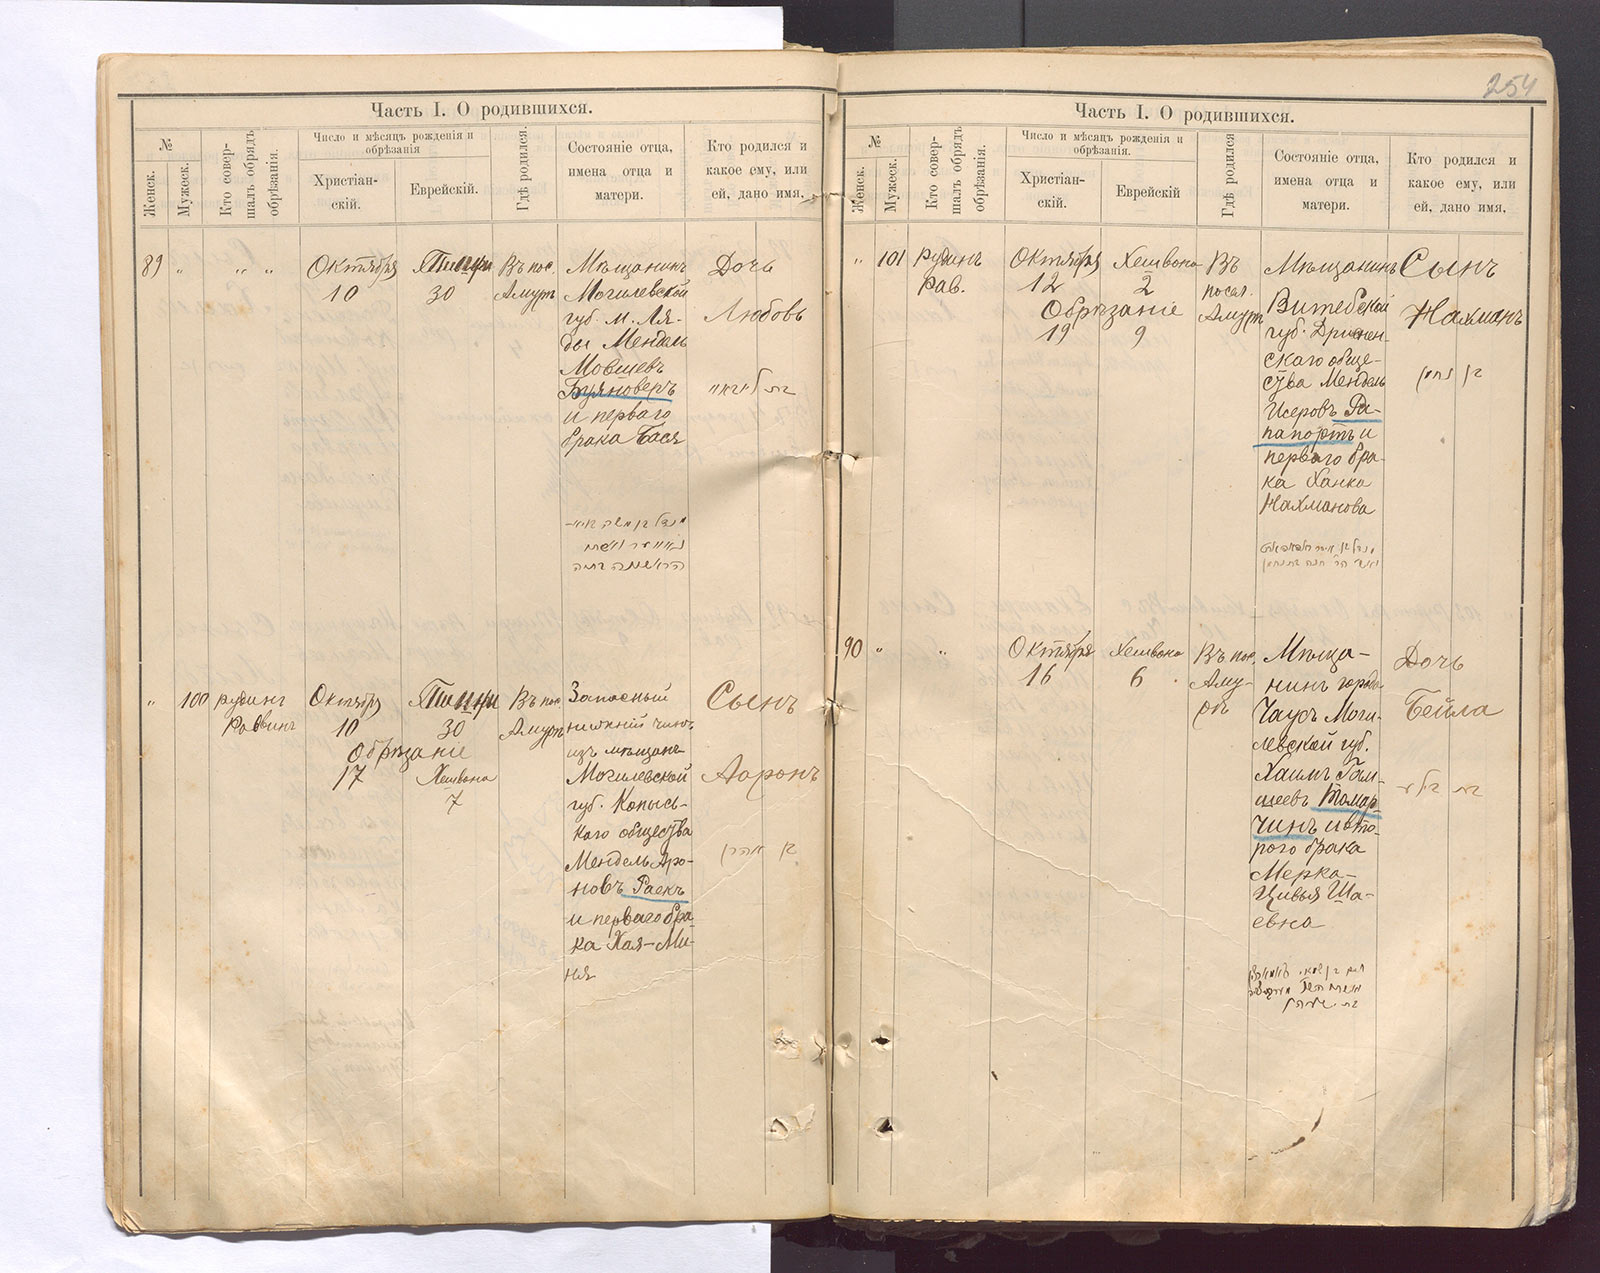 254
Часть I. О родившихся.
№
Женск.
Мужеск.
Кто совер-
шалъ обрядъ
обрѣзанія.
Число и мѣсяцъ рожденія и
обрѣзанія
Христіан-
скій.
Еврейскій.
Гдѣ родился.
Состояніе отца,
имена отца и
матери.
Кто родился и
какое ему, или
ей, дано имя.
89 " " "
Октября
10
Тишри
30
Въ пос.
Амуръ
Мѣщанинъ
Могилевской
губ. м. Ля-
ды Мендель
Мовшевъ
Буяноверъ
и перваго
брака Бася
Дочь
Любовь
" 100
рудинг
Раввинъ
Октября
10
Тишри
30
Обрѣзаніе
17
Хешвона
7
Въ пос
Амуръ
Запасный
нижній чинъ
изъ мѣщанъ
Могилевской
губ. Копысь-
каго общества
Мендель Аро-
новъ Раекъ
и перваго бра
ка Хая-Ми-
ня
Сынъ
Ааронъ
בן אהרן
Часть I. О родившихся.
№
Женск.
Мужеск.
Кто совер-
шалъ обрядъ
обрѣзанія.
Число и мѣсяцъ рожденія и
обрѣзанія.
Христіан-
скій.
Еврейскій.
Гдѣ родился
Состояніе отца,
имена отца и
матери.
Кто родился и
какое ему, или
ей, дано имя.
" 101
Рудинъ
Рав.
Октября
12
Хешвона
2
Обрѣзаніе
19
9
Въ
посел.
Амуръ
Мѣщанинъ
Витебской
губ. Дриссен-
скаго обще-
ства Мендель
Исеровъ Ра-
папортъ и
перваго бра-
ка Ханка
Нахманова
Сынъ
Нахманъ
בן נחמן
90 " "
Октября
16
Хешвона
6
Въ пос.
Аму-
ръ
Мѣща-
нинъ города
Чаусъ Моги-
левской губ.
Хаимъ Гам-
шеевъ Тамар-
чинъ и вто-
рого брака
Мерка-
Цивья Ша-
евна
Дочь
Бейла
בת בילע